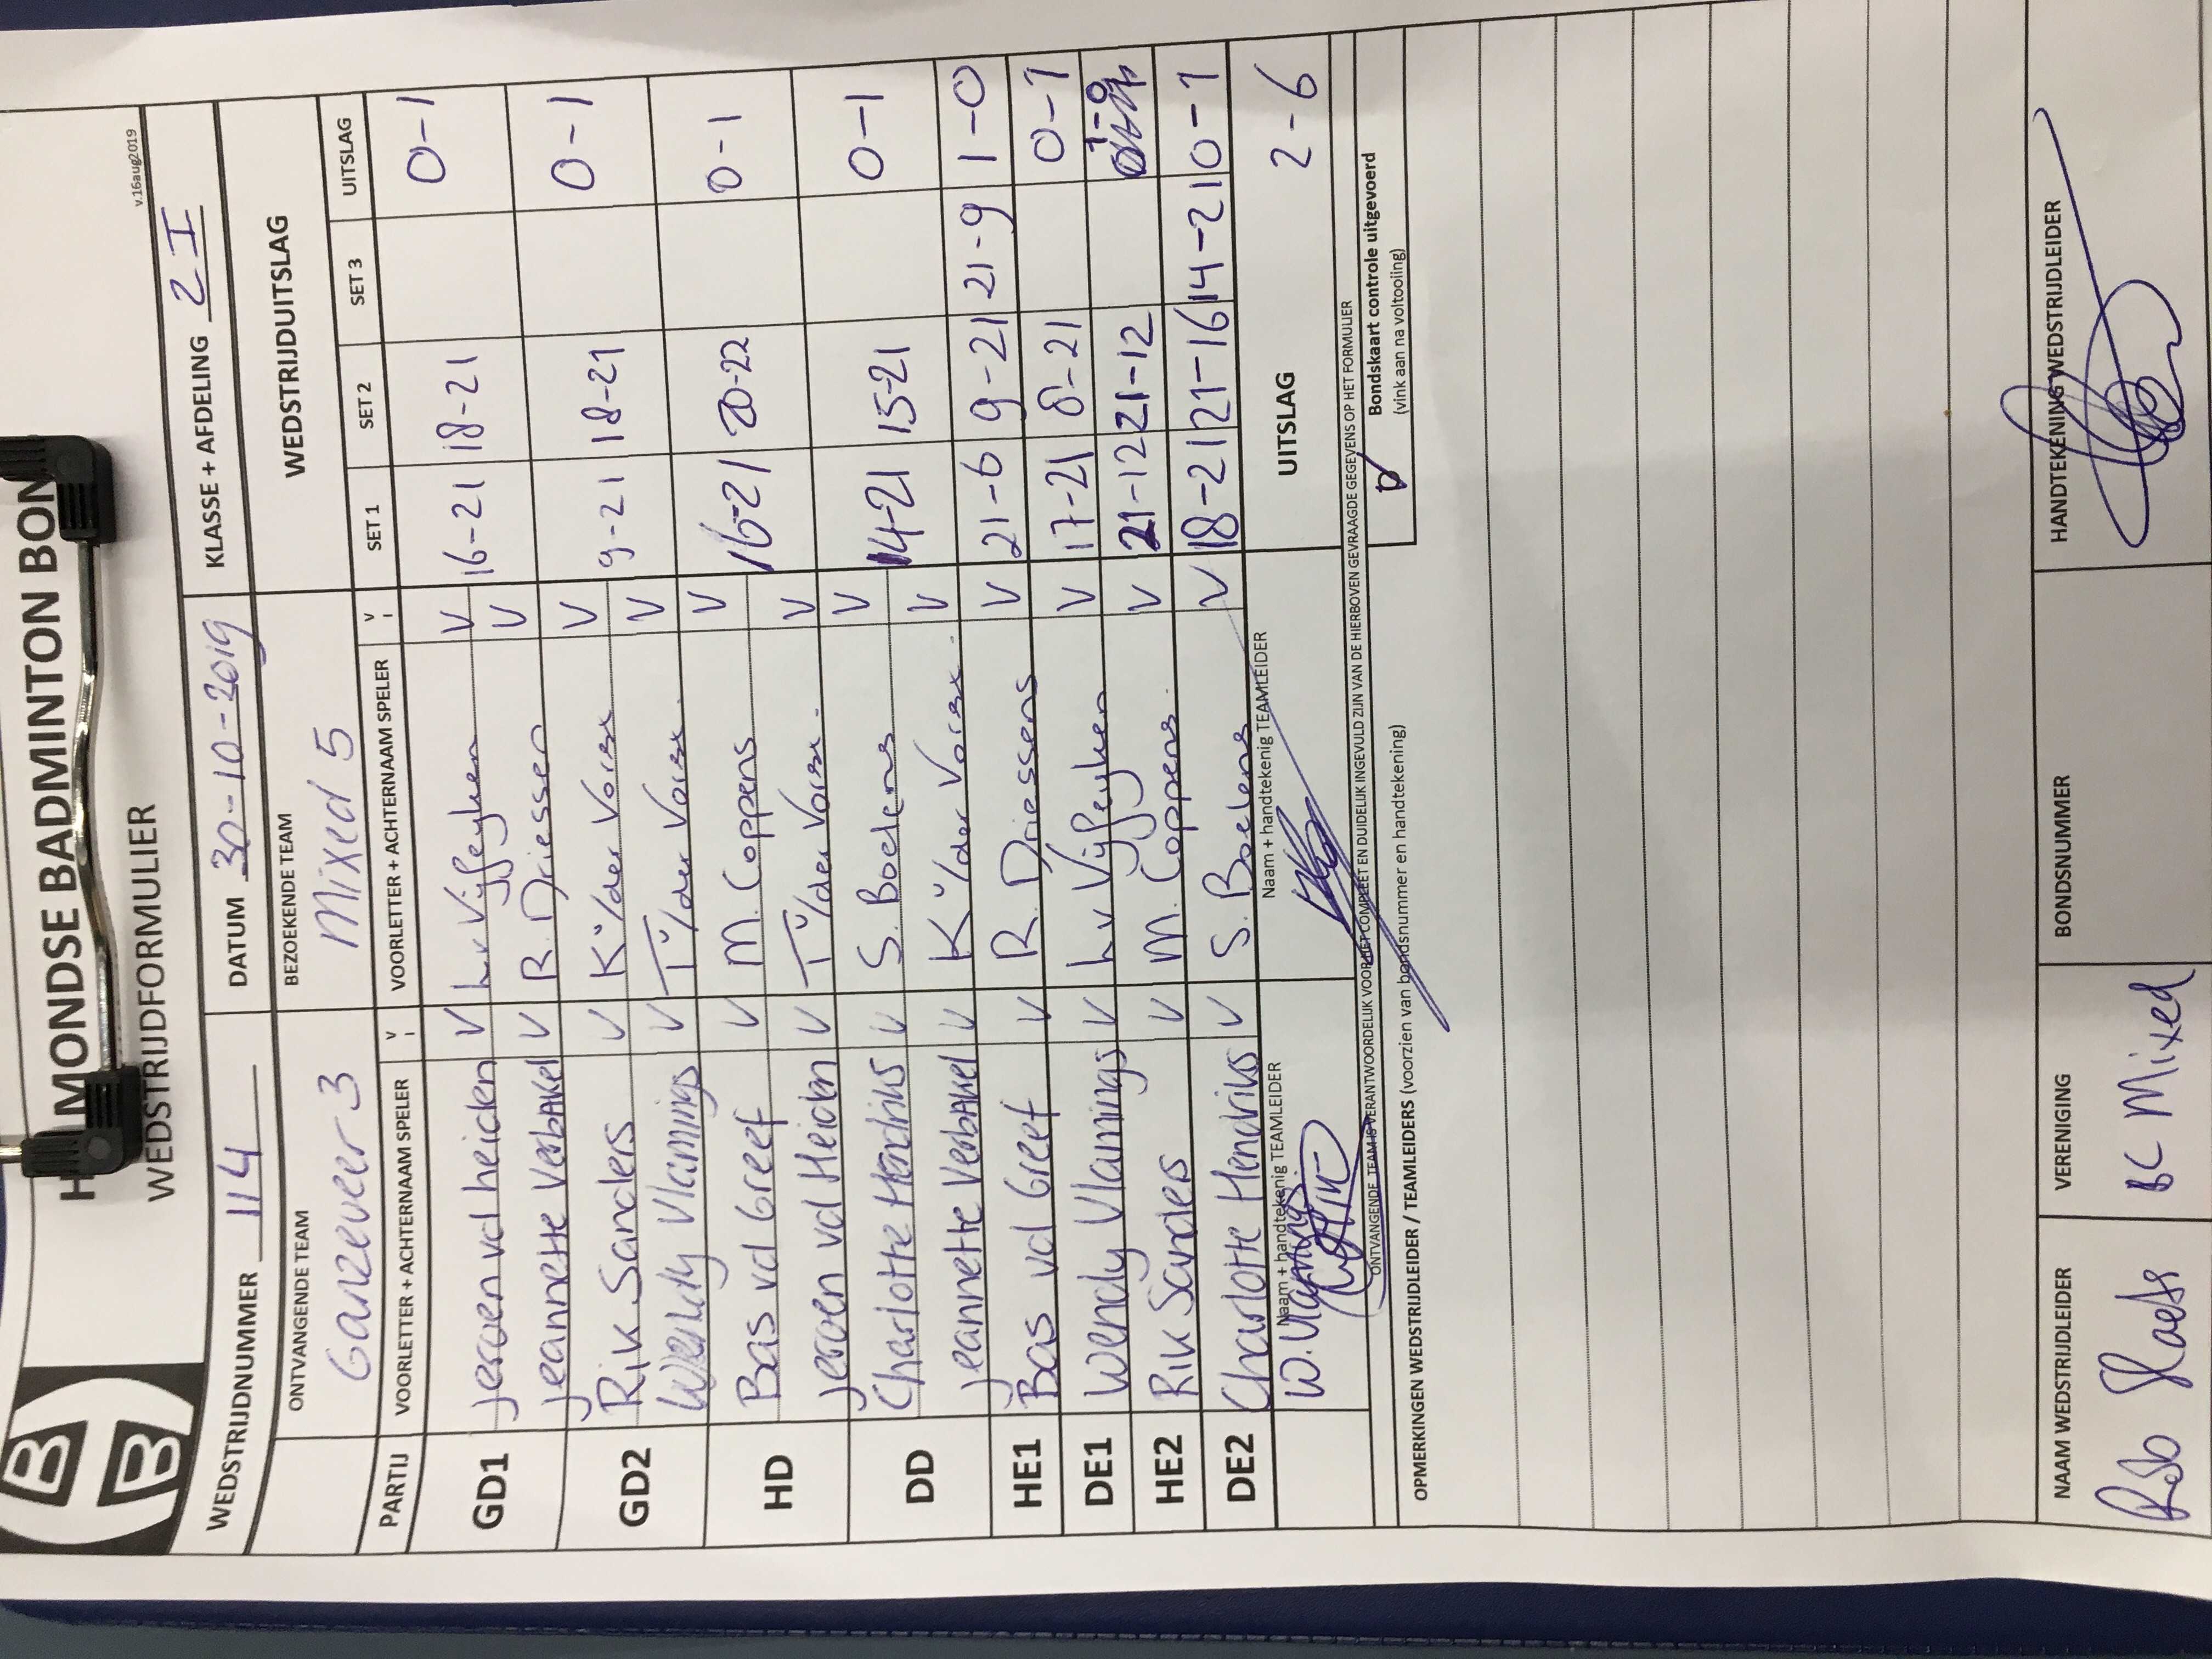 MONDSE BADMINTON BON
WEDSTRIJDFORMULIER
v.16aug2019
WEDSTRIJDNUMMER 114 DATUM 30-10-2019 KLASSE + AFDELING 2 I
ONTVANGENDE TEAM BEZOEKENDE TEAM WEDSTRIJDUITSLAG
Ganzeveer 3 Mixed 5
PARTIJ VOORLETTER + ACHTERNAAM SPELER V VOORLETTER + ACHTERNAAM SPELER V SET 1 SET 2 SET 3 UITSLAG
GD1 jeroen vd heiden V L v Vijfeyken V 16-21 18-21 0-1
jeannette Verbakel V R. Driessen V
GD2 Rik Sanders V K v/der Vorst V 9-21 18-21 0-1
Wendy Vlamings V T v/der Vorst. V
HD Bas vd Greef V M. Coppens V 16-21 20-22 0-1
jeroen vd Heiden V T v/der Vorst. V
DD Charlotte Hendriks V S. Boelens V 14-21 15-21 0-1
jeannette Verbakel V K v/der Vorst. V
HE1 Bas vd Greef V R. Driessens V 21-6 9-21 21-9 1-0
DE1 Wendy Vlamings V L v Vijfeyken V 17-21 8-21 0-1
HE2 Rik Sanders V M. Coppens. V 21-12 21-12 1-0
DE2 Charlotte Hendriks V S. Boelens V 18-21 21-16 14-21 0-1
Naam + handtekenig TEAMLEIDER Naam + handtekenig TEAMLEIDER UITSLAG 2-6
W. Vlamings
ONTVANGENDE TEAM IS VERANTWOORDELIJK VOOR HET COMPLEET EN DUIDELIJK INGEVULD ZIJN VAN DE HIERBOVEN GEVRAAGDE GEGEVENS OP HET FORMULIER
Bondskaart controle uitgevoerd
(vink aan na voltooiing)
OPMERKINGEN WEDSTRIJDLEIDER / TEAMLEIDERS (voorzien van bondsnummer en handtekening)
NAAM WEDSTRIJDLEIDER VERENIGING BONDSNUMMER HANDTEKENING WEDSTRIJDLEIDER
Rob BC Mixed